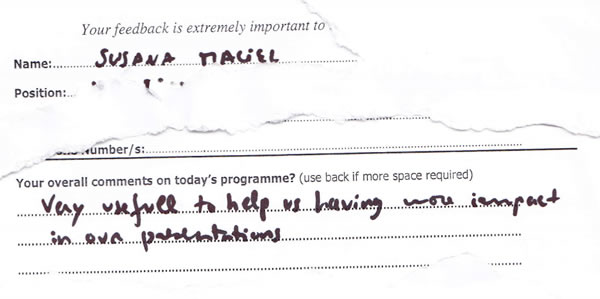 Your feedback is extremely important to
Name: SUSANA MACIEL
Position:
umber/s:
Your overall comments on today's programme? (use back if more space required)
Very usefull to help us having more impact
in our presentations